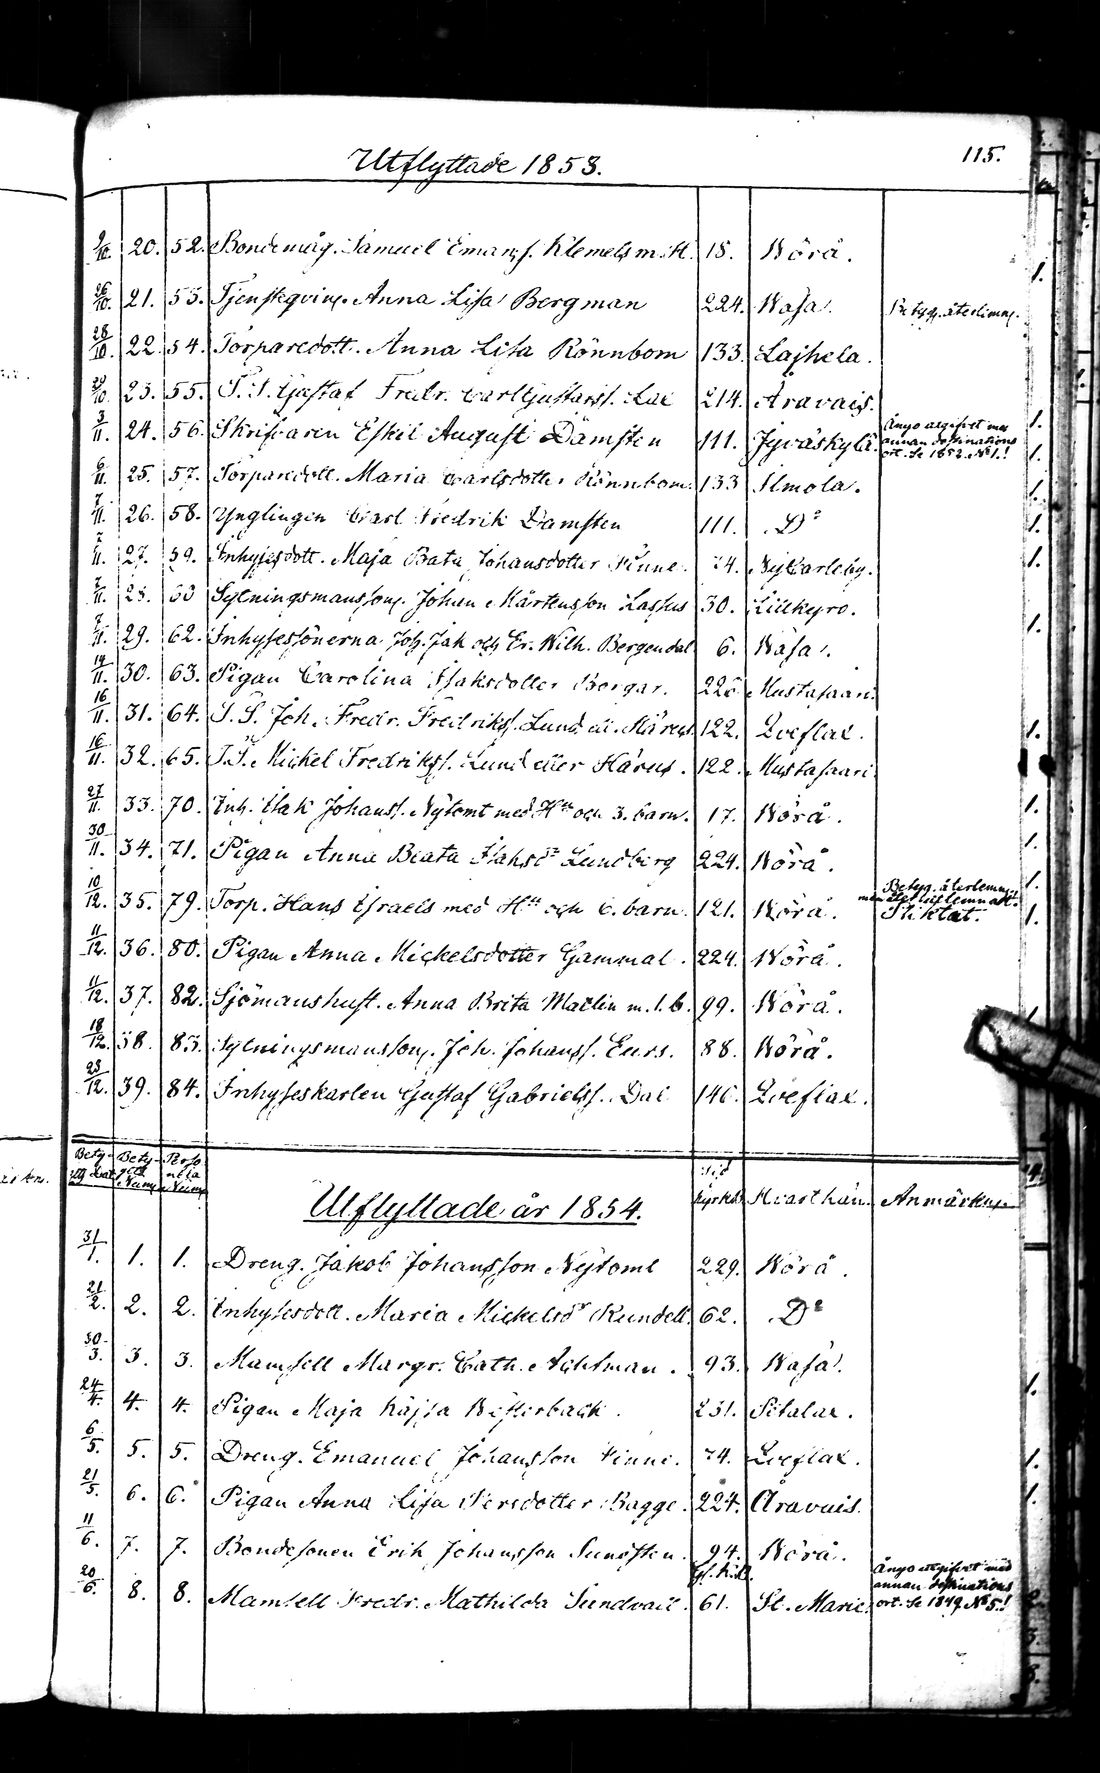 115.
Utflyttade 1853.
9/10. 20. 52. Bondemåg. Samuel Emanss. Klemets m. H. 18. Wörå.
26/10. 21. 53. Tjensteqvin. Anna Lisa Bergman 224. Wasa. Betyg. återlemn.
28/10. 22. 54. Torparedott. Anna Lisa Rönnbom 133. Lajhela.
29/10. 23. 55. T. S. Gustaf Fredr. Carl Gustafss. Lax 214. Åravais.
3/11. 24. 56. Skrifvaren Eskil August Damsten 111. Jyväskylä. Ånyo utgifvet med annan destinations ort. Se 1852 No 1.!
6/11. 25. 57. Torparedott. Maria Carlsdotter Rönnbom. 133 Ilmola.
7/11. 26. 58. Ynglingen Carl Fredrik Damsten 111. Do
7/11. 27. 59. Inhysesdott. Maja Beata Johansdotter Finne. 74. NyCarleby.
7/11. 28. 60 Sytningsmansson. Johan Mårtensson Lassus 30. Lillkyro.
7/11. 29. 62. Inhysessönerna Joh. Jak och Er. Wilh. Bergendal 6. Wasa.
14/11. 30. 63. Pigan Carolina Isaksdotter Borgar. 226 Mustasaari.
16/11. 31. 64. T. S. Joh. Fredr. Fredrikss. Lund ell. Härus 122. Qveflax.
16/11. 32. 65. T. S. Mickel Fredrikss. Lund eller Härus. 122. Mustasaari
27/11. 33. 70. Inh. Isak Johanss. Nytomt med H:u och 3. barn. 17. Wörå.
30/11. 34. 71. Pigan Anna Beata Isaksdr Lundberg 224. Wörå.
10/12. 35. 79. Torp. Hans Israels med H:u och 6. barn. 121. Wörå. Betyg. återlemn.
11/12. 36. 80. Pigan Anna Mickelsdotter Gammal. 224. Wörå.
11/12. 37. 82. Sjömanshust. Anna Brita Matlin m. 1. b. 99. Wörå.
18/12. 38. 83. Sytningsmansson. Joh. Johanss. Eurs. 88. Wörå.
23/12. 39. 84. Inhyseskarlen Gustaf Gabrielss. Dal 146. Qveflax.
Betygets Numr Numr Hvarthän. Anmärkn.
Utflyttade år 1854.
31/1. 1. 1. Dreng. Jakob Johansson Nytomt 229. Wörå.
21/2. 2. 2. Inhysesdott. Maria Mickelsdr Rundell. 62. Do
30/3. 3. 3. Mamsell Margr. Cath. Achtman. 93. Wasa.
24/4. 4. 4. Pigan Maja Kajsa Westerback. 231. Sitalax.
6/5. 5. 5. Dreng. Emanuel Johansson Finne. 74. Qveflax.
21/5. 6. 6. Pigan Anna Lisa Persdotter Bagge. 224. Åravais.
11/6. 7. 7. Bondesonen Erik Johansson Sundsten. 94. Wörå.
20/6. 8. 8. Mamsell Fredr. Mathilda Sundvall. 61. St. Marie. Ånyo utgifvet med annan destinations ort. Se 1849 No 5.!